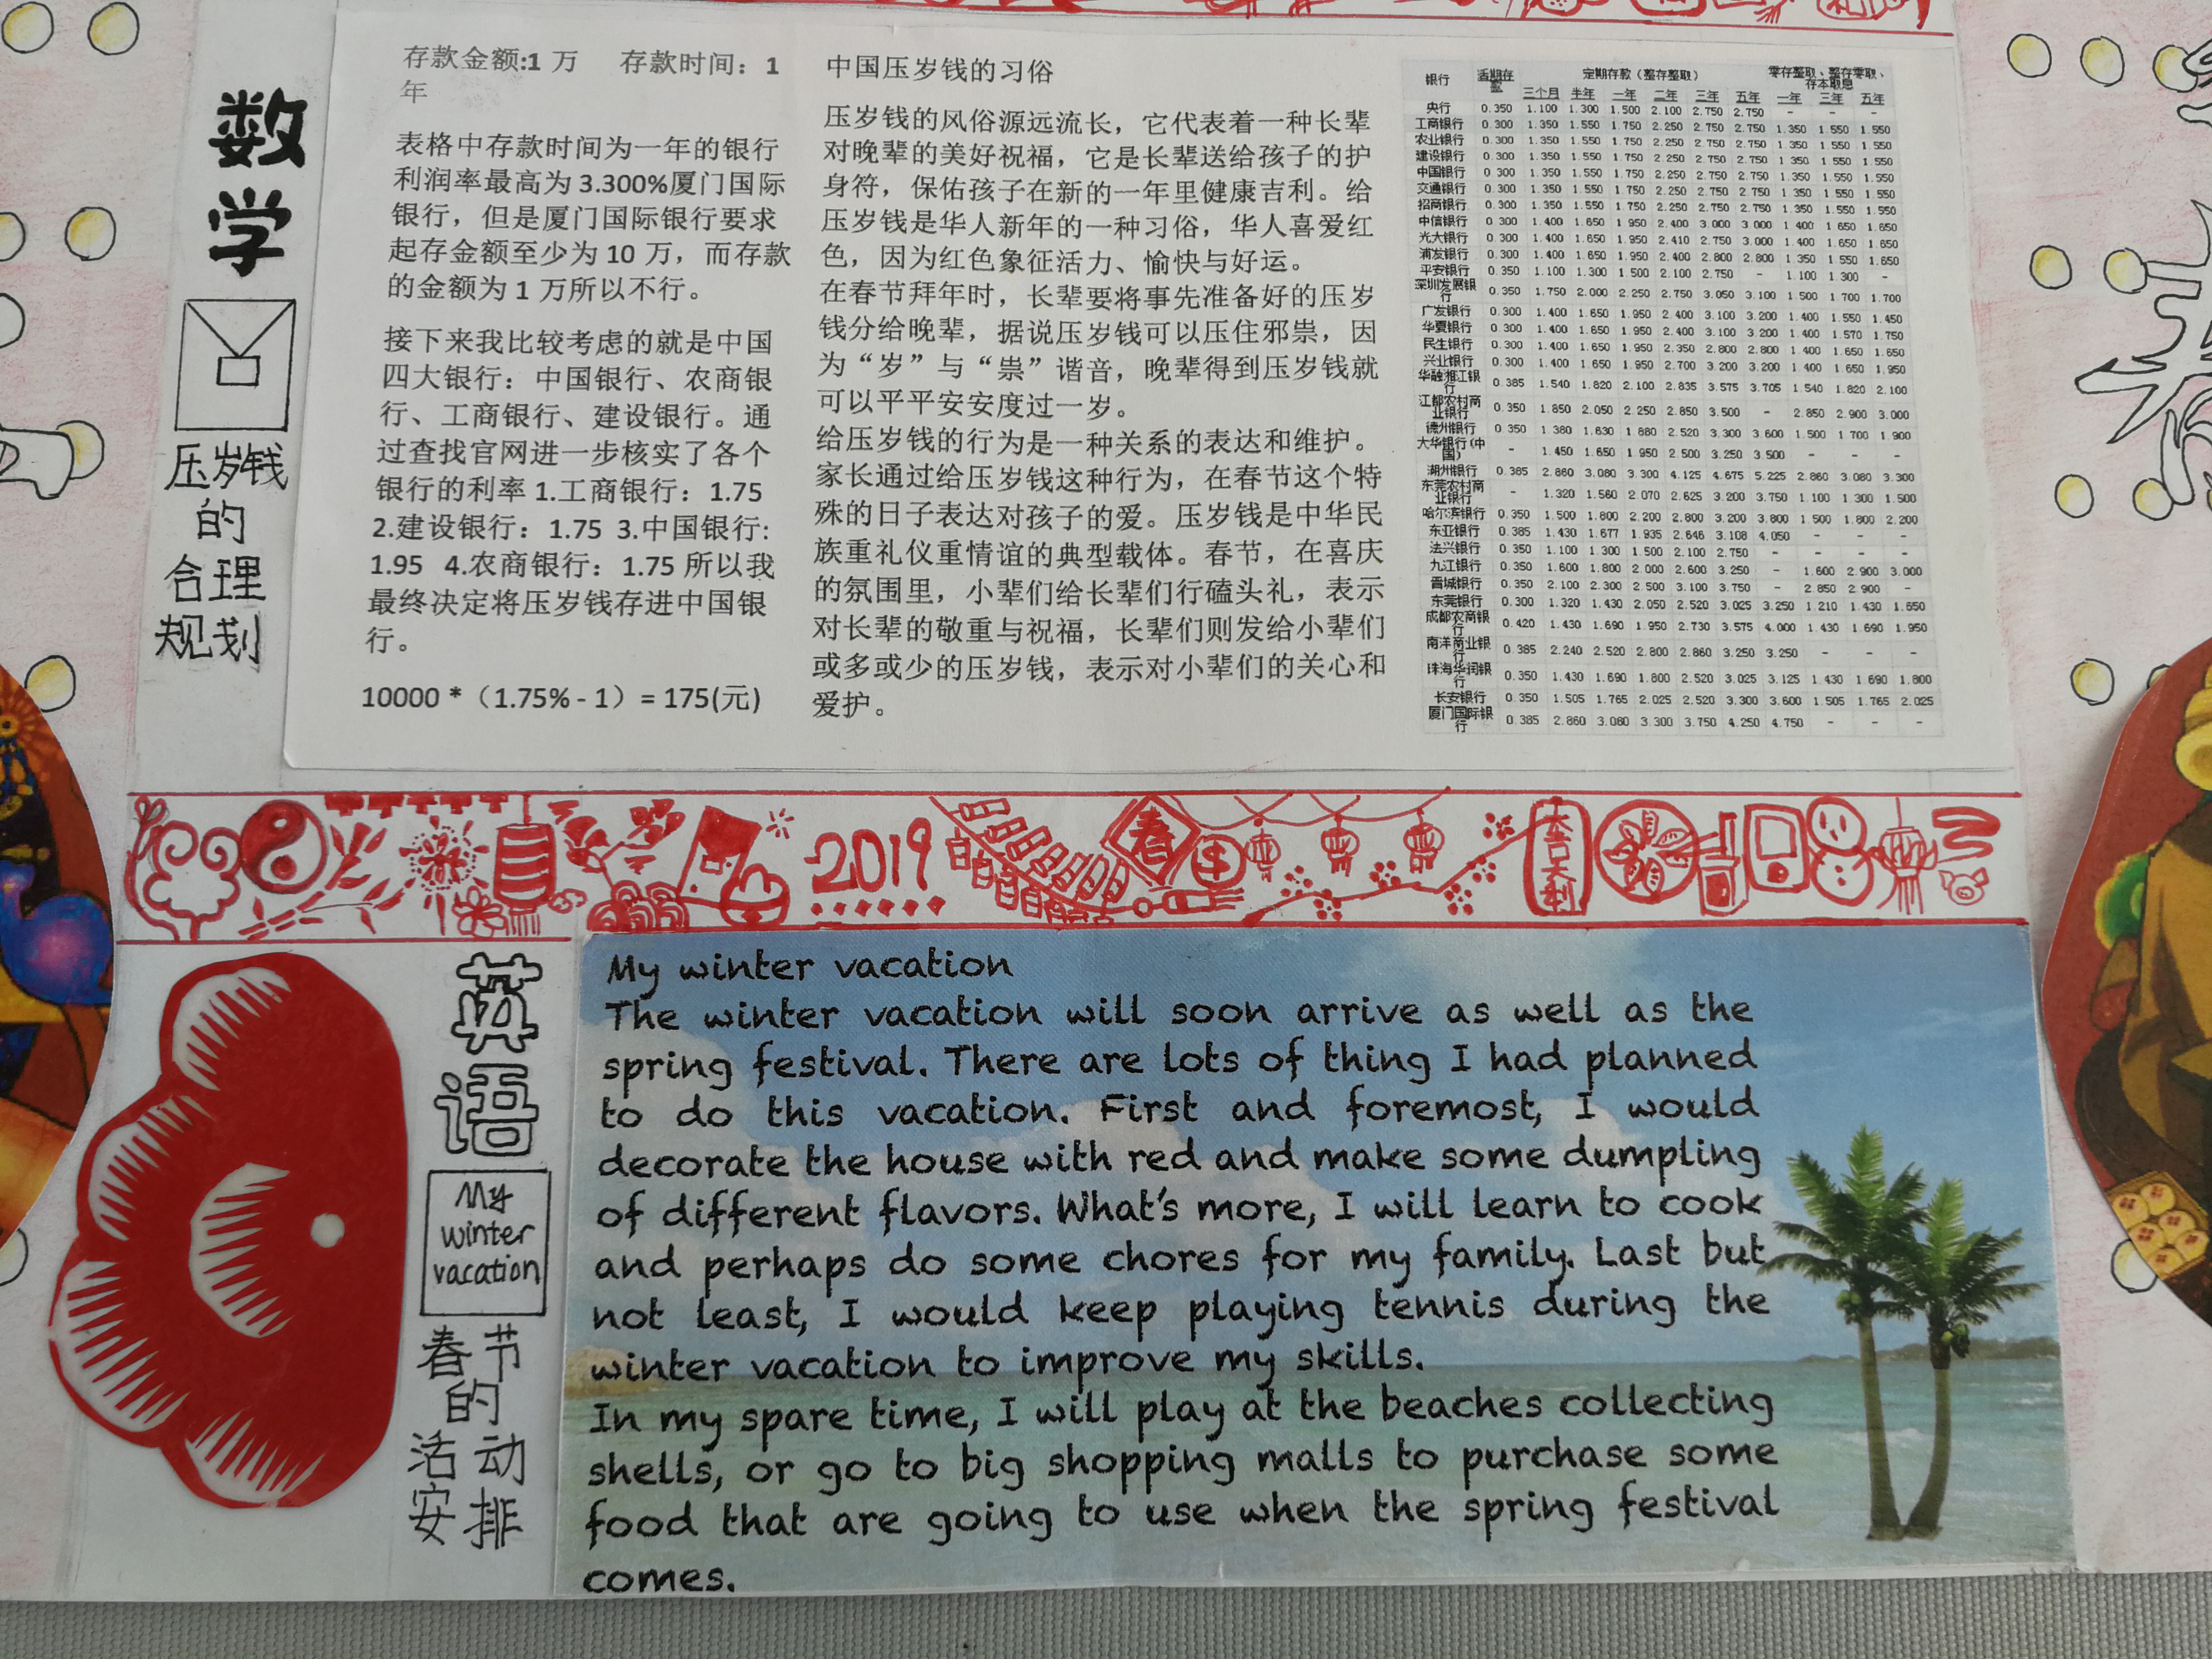 数
学
压岁钱
的
合理
规划
存款金额:1 万 存款时间：1
年
表格中存款时间为一年的银行
利润率最高为 3.300%厦门国际
银行，但是厦门国际银行要求
起存金额至少为 10 万，而存款
的金额为 1 万所以不行。
接下来我比较考虑的就是中国
四大银行：中国银行、农商银
行、工商银行、建设银行。通
过查找官网进一步核实了各个
银行的利率 1.工商银行：1.75
2.建设银行：1.75 3.中国银行:
1.95 4.农商银行：1.75 所以我
最终决定将压岁钱存进中国银
行。
10000 *（1.75% - 1）= 175(元)
中国压岁钱的习俗
压岁钱的风俗源远流长，它代表着一种长辈
对晚辈的美好祝福，它是长辈送给孩子的护
身符，保佑孩子在新的一年里健康吉利。给
压岁钱是华人新年的一种习俗，华人喜爱红
色，因为红色象征活力、愉快与好运。
在春节拜年时，长辈要将事先准备好的压岁
钱分给晚辈，据说压岁钱可以压住邪祟，因
为“岁”与“祟”谐音，晚辈得到压岁钱就
可以平平安安度过一岁。
给压岁钱的行为是一种关系的表达和维护。
家长通过给压岁钱这种行为，在春节这个特
殊的日子表达对孩子的爱。压岁钱是中华民
族重礼仪重情谊的典型载体。春节，在喜庆
的氛围里，小辈们给长辈们行磕头礼，表示
对长辈的敬重与祝福，长辈们则发给小辈们
或多或少的压岁钱，表示对小辈们的关心和
爱护。
银行 活期存款 定期存款（整存整取） 零存整取、整存零取、存本取息
三个月 半年 一年 二年 三年 五年 一年 三年 五年
央行 0.350 1.100 1.300 1.500 2.100 2.750 2.750 - - -
工商银行 0.300 1.350 1.550 1.750 2.250 2.750 2.750 1.350 1.550 1.550
农业银行 0.300 1.350 1.550 1.750 2.250 2.750 2.750 1.350 1.550 1.550
建设银行 0.300 1.350 1.550 1.750 2.250 2.750 2.750 1.350 1.550 1.550
中国银行 0.300 1.350 1.550 1.750 2.250 2.750 2.750 1.350 1.550 1.550
交通银行 0.300 1.350 1.550 1.750 2.250 2.750 2.750 1.350 1.550 1.550
招商银行 0.300 1.350 1.550 1.750 2.250 2.750 2.750 1.350 1.550 1.550
中信银行 0.300 1.400 1.650 1.950 2.400 3.000 3.000 1.400 1.650 1.650
光大银行 0.300 1.400 1.650 1.950 2.410 2.750 3.000 1.400 1.650 1.650
浦发银行 0.300 1.400 1.650 1.950 2.400 2.800 2.800 1.350 1.550 1.650
平安银行 0.350 1.100 1.300 1.500 2.100 2.750 - 1.100 1.300 -
深圳发展银行 0.350 1.750 2.000 2.250 2.750 3.050 3.100 1.500 1.700 1.700
广发银行 0.300 1.400 1.650 1.950 2.400 3.100 3.200 1.400 1.550 1.450
华夏银行 0.300 1.400 1.650 1.950 2.400 3.100 3.200 1.400 1.570 1.750
民生银行 0.300 1.400 1.650 1.950 2.350 2.800 2.800 1.400 1.650 1.650
兴业银行 0.300 1.400 1.650 1.950 2.700 3.200 3.200 1.400 1.650 1.950
华融湘江银行 0.385 1.540 1.820 2.100 2.835 3.575 3.705 1.540 1.820 2.100
江都农村商业银行 0.350 1.850 2.050 2.250 2.850 3.500 - 2.850 2.900 3.000
德州银行 0.350 1.380 1.630 1.880 2.520 3.300 3.600 1.500 1.700 1.900
大华银行(中国) - 1.450 1.650 1.950 2.500 3.250 3.500 - - -
湖州银行 0.385 2.860 3.080 3.300 4.125 4.675 5.225 2.860 3.080 3.300
东莞农村商业银行 - 1.320 1.560 2.070 2.625 3.200 3.750 1.100 1.300 1.500
哈尔滨银行 0.350 1.500 1.800 2.200 2.800 3.200 3.800 1.500 1.800 2.200
东亚银行 0.385 1.430 1.677 1.935 2.646 3.108 4.050 - - -
法兴银行 0.350 1.100 1.300 1.500 2.100 2.750 - - - -
九江银行 0.350 1.600 1.800 2.000 2.600 3.250 - 1.600 2.900 3.000
晋城银行 0.350 2.100 2.300 2.500 3.100 3.750 - 2.850 2.900 -
东莞银行 0.300 1.320 1.430 2.050 2.520 3.025 3.250 1.210 1.430 1.650
成都农商银行 0.420 1.430 1.690 1.950 2.730 3.575 4.000 1.430 1.690 1.950
南洋商业银行 0.385 2.240 2.520 2.800 2.860 3.250 3.250 - - -
珠海华润银行 0.350 1.430 1.690 1.800 2.520 3.025 3.125 1.430 1.690 1.800
长安银行 0.350 1.505 1.765 2.025 2.520 3.300 3.600 1.505 1.765 2.025
厦门国际银行 0.385 2.860 3.080 3.300 3.750 4.250 4.750 - - -
2019
春
大吉大利
英
语
My
winter
vacation
春节
的
活动
安排
My winter vacation
The winter vacation will soon arrive as well as the
spring festival. There are lots of thing I had planned
to do this vacation. First and foremost, I would
decorate the house with red and make some dumpling
of different flavors. What's more, I will learn to cook
and perhaps do some chores for my family. Last but
not least, I would keep playing tennis during the
winter vacation to improve my skills.
In my spare time, I will play at the beaches collecting
shells, or go to big shopping malls to purchase some
food that are going to use when the spring festival
comes.